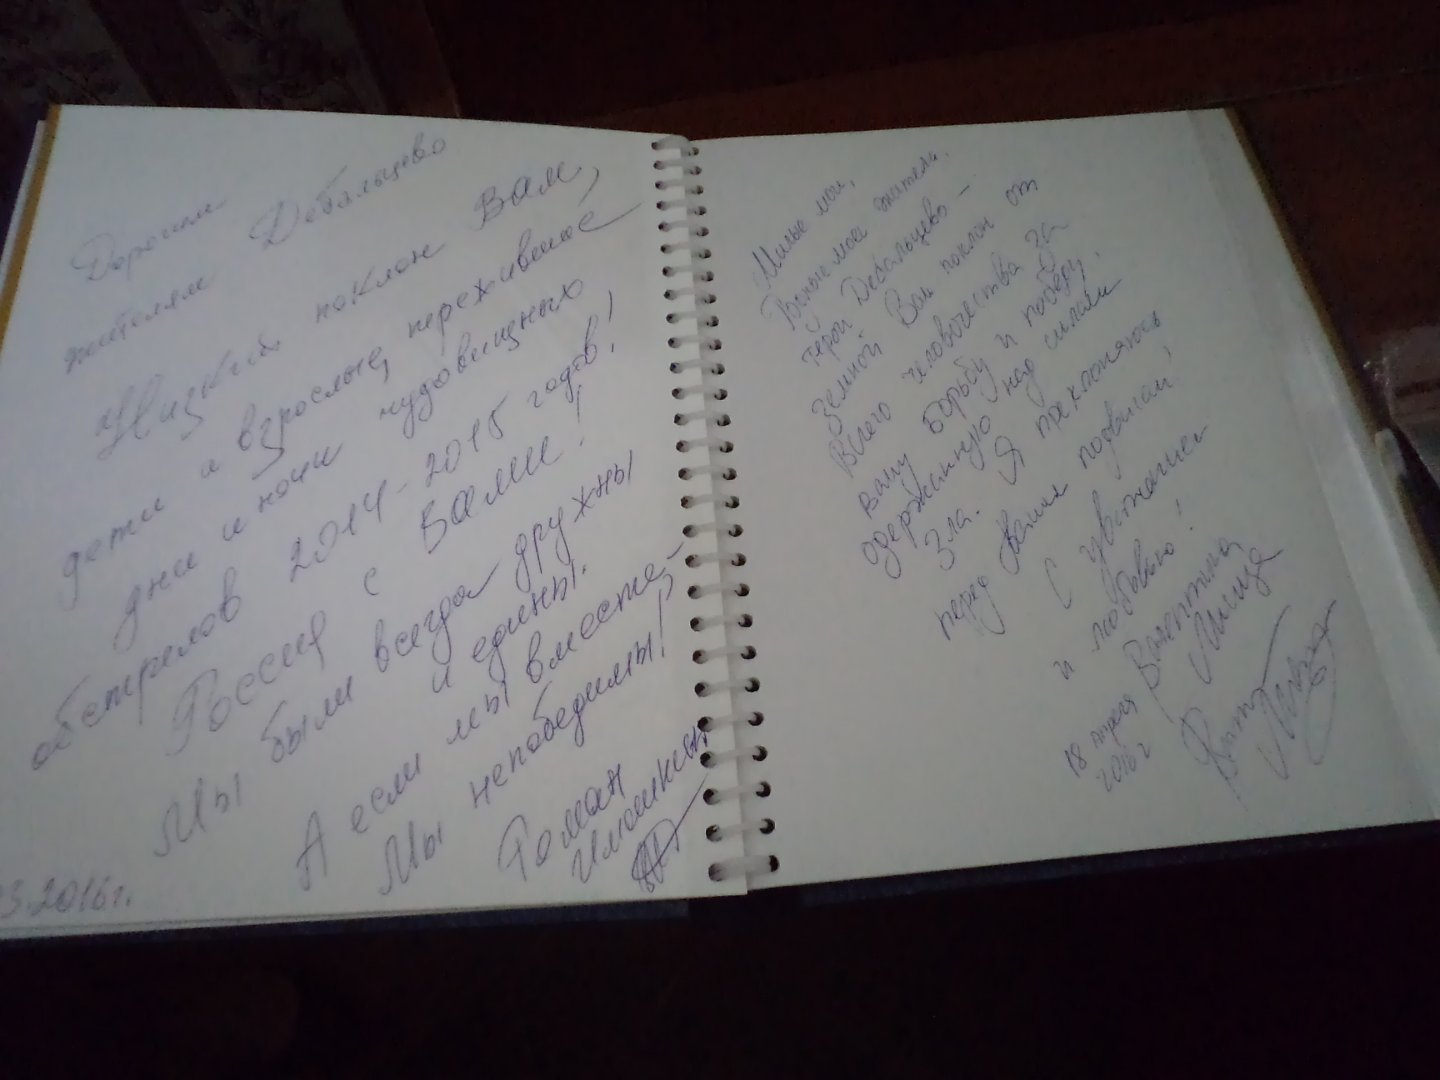 Дорогим
жителям Дебальцево
Низкий поклон Вам,
дети и взрослые, пережившие
дни и ночи чудовищных
обстрелов 2014-2015 годов!
Россия с Вами!
Мы были всегда дружны
и едины.
А если мы вместе,
Мы непобедимы!
Роман
3.2016г.
Милые мои,
мои жители.
Герои Дебальцево –
Земной Вам поклон от
Всего человечества за
вашу борьбу и победу,
одержанную над силами
Зла. Я преклоняюсь
перед Вашим подвигам!
С уважением
и любовью!
Валентина
Лисица
18 апреля
2016 г